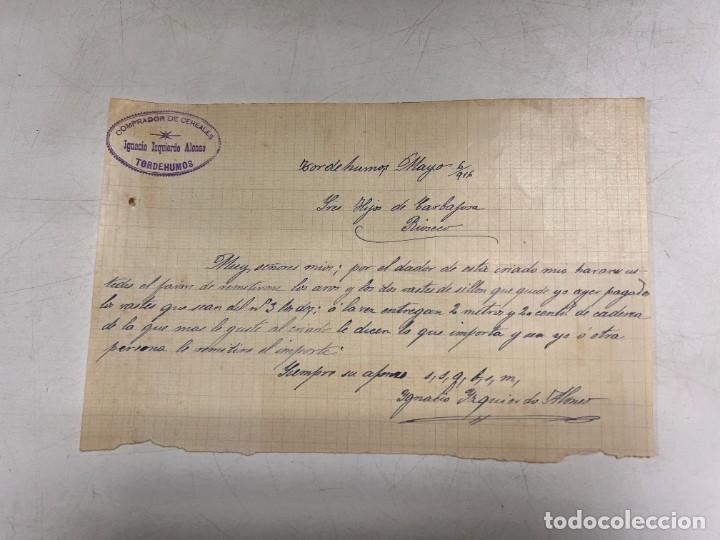 COMPRADOR DE CEREALES
Ignacio Izquierdo Alonso
TORDEHUMOS
Tordehumos Mayo 6/916
Sres Hijos de Carbajosa
Rioseco
Muy señores mios: por el dador de esta criado mio haran us-
tedes el favor de remitirme los aros y los dos rastes de sillon que quede yo ayer pagado
los rastes que sean del nº 3 los dos; á la vez entregan 2 metros y 20 cents de cadena
de la que mas le guste al criado le dicen lo que importa y un yo ó otra
persona le remitire el importe:
Siempre su afmo s, s, q, b, s, m,
Ignacio Izquierdo Alonso
todocoleccion
todocoleccion.net